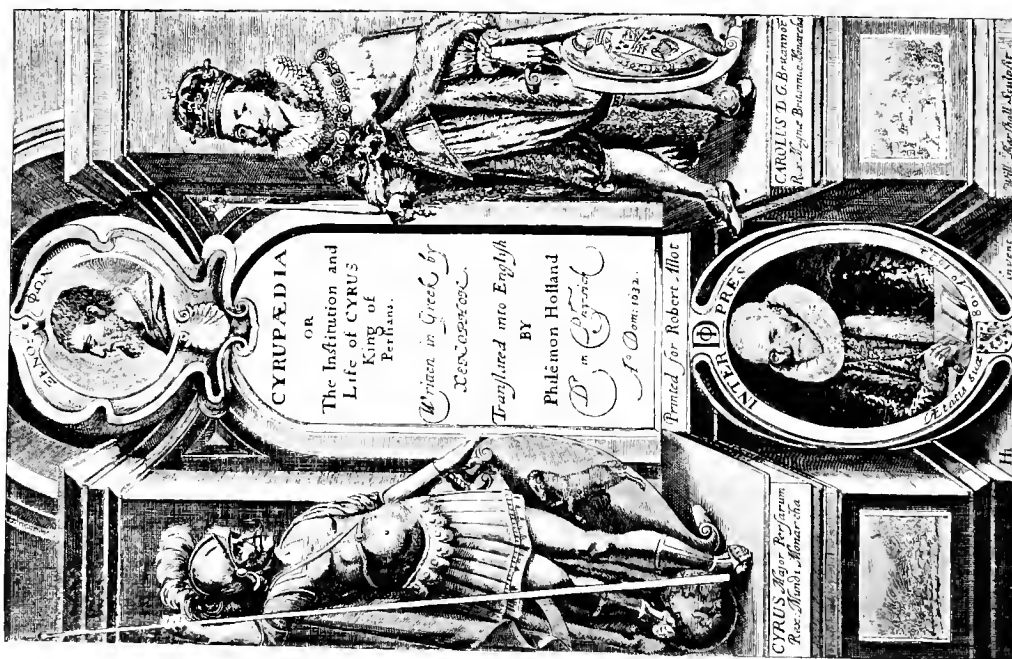 ΞΕΝΟ ΦΩΝ
CYRUPÆDIA
OR
The Institution and
Life of CYRUS
King of
Persians.
Written in Greek by
Xenophon.
Translated into English
BY
Philémon Holland
D^r in Physick
A° Domi: 1632.
Printed for Robert Allot
CYRUS Major Persarum
Rex. Mundi Monarcha
CAROLUS D. G. Britannor
Rex. Magnæ Britanniæ Monarcha
INTER PRES
Ætatis suæ 80
Will: Marshall Sculpsit